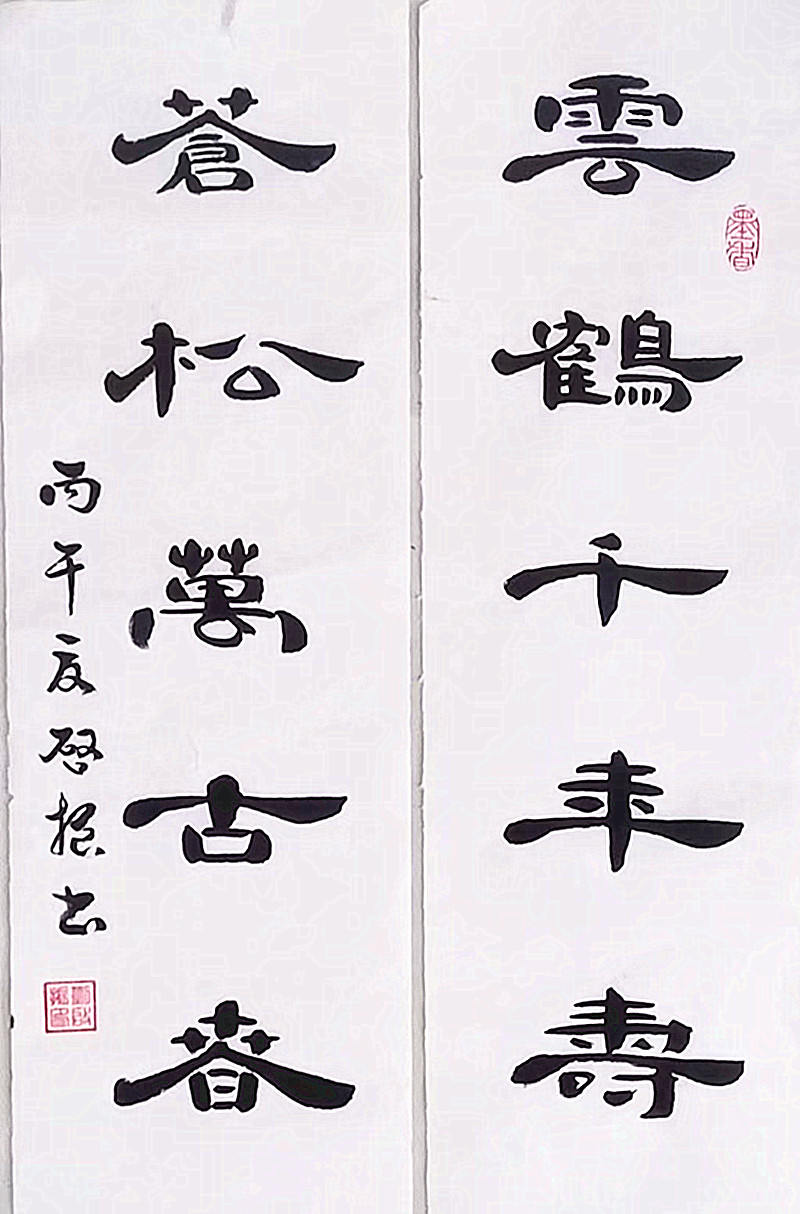 雲鶴千年壽
墨香
蒼松萬古春
丙午夏啓振書